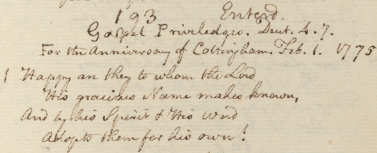 193 Enterd.
Gospel Priviledges. Deut. 4. 7.
For the Anniversary of Cottingham. Feb. 1. 1775
1 Happy are they to whom the Lord
His gracious Name makes known,
And by his Spirit & His Word
Adopts them for his own!